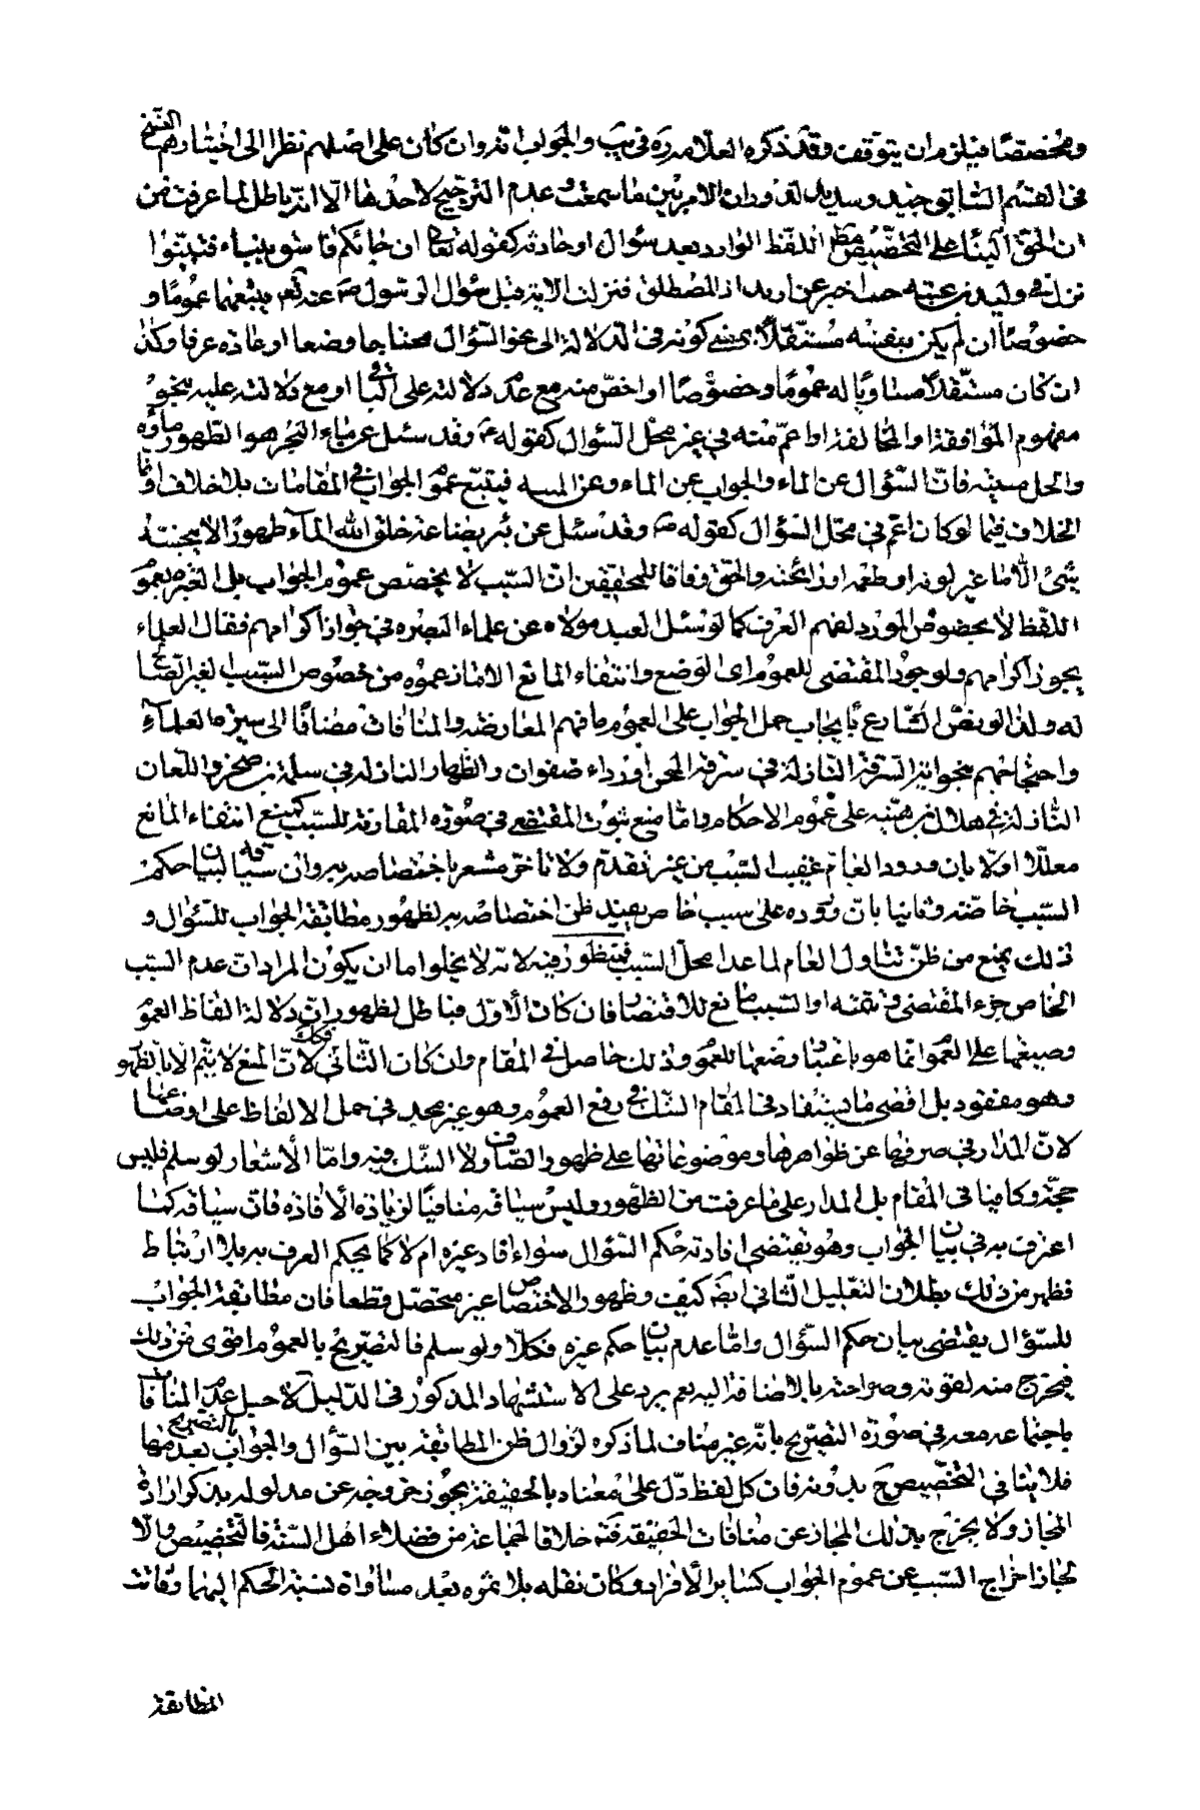 ومخصصًا فيلزم ان يتوقف وقد ذكره العلامة ره في يب والجواب انه وان كان على اصلهم نظرا الى اختيارهم النسخ
في القسم السابق جيد وسديد لدوران الامر بين ما سمعت وعدم الترجيح لاحدهما الّا انه باطل لما عرفت من
ان الحق البناء على التخصيص مطلقا اللفظ الوارد بعد سؤال او حادثة كقوله تعالى ان جائكم فاسق بنباء فتبيّنوا
نزل في وليد بن عقبة حيث اخبر عن ارتداد المصطلق فنزلت الاية قبل سؤال الرسول ص عنه يتبعهما عمومًا و
خصوصًا ان لم يكن بنفسه مستقلًا بمعنى كونه في الدلالة الى نحو السؤال محتاجا وضعا او عادة عرفا وكذا
ان كان مستقلًا مساويًا له عمومًا وخصوصًا او اخصّ منه مع عدم دلالته على الباقي او مع دلالته عليه بنحو
مفهوم الموافقة او المخالفة او اعمّ منه في غير محل السؤال كقوله ع وقد سئل عن ماء البحر هو الطهور ماؤه
والحل ميتته فانّ السّؤال عن الماء والجواب عن الماء وعن الميتة فيتبع عموم الجواب في المقامات بلا خلاف وانما
الخلاف فيما لو كان اعمّ في محل السؤال كقوله ص وقد سئل عن بئر بضاعة خلق الله المآء طهورًا لا ينجسه
شئ الّا ما غير لونه او طعمه او رائحته والحق وفاقا للمحققين انّ السّبب لا يخصّص عموم الجواب بل العبرة بعموم
اللفظ لا بخصوص المورد لفهم العرف كما لو سئل العبد مولاه عن علماء البصرة في جواز اكرامهم فقال العلماء
يجوز اكرامهم ولوجود المقتضى للعموم اي الوضع وانتفاء المانع الا ما زعموه من خصوص السبب لغير الصالح
له ولذا لو نصّ الشارع بايجاب حمل الجواب على العموم ما فهم المعارضة والمنافات مضافًا الى سيرة العلمآء
واحتجاجهم بنحو اية السرقة النازلة في سرقة المجن او رداء صفوان والظهار النازلة في سلمة بن صخر واللعان
النازلة في هلال بن امية على عموم الاحكام واما منع ثبوت المقتضى في صورة المقارنة للسبب كمنع انتفاء المانع
معلّلا اولا بان ورود العام عقيب السّبب من غير تقدّم ولا تأخر مشعر باختصاصه به وان سياقه لبيان حكم
السّبب خاصة وثانيا بان وروده على سبب خاص يفيد ظن اختصاصه به لظهور مطابقة الجواب للسؤال و
ذلك يمنع من ظن تناول العام لما عدا محل السبب فمنظور فيه لانه لا يخلو اما ان يكون المراد ان عدم السبب
الخاص جزء المقتضى وتتمته او السبب مانع للاقتضاء فان كان الأول فباطل لظهور ان دلالة الفاظ العموم
وصيغها على العموم انما هو باعتبار وضعها للعموم وذلك حاصل في المقام وان كان الثاني فكك لانّ المنع لا يتم الا بالظهور
وهو مفقود بل اقصى ما يستفاد في المقام الشك في رفع العموم وهو غير مجد في حمل الالفاظ على اوضاعها
لانّ المدار في صرفها عن ظواهرها وموضوعاتها على ظهور الصارف ولا الشك فيه وامّا الأشعار لو سلم فليس
حجّة وكافيا في المقام بل المدار على ما عرفت من الظهور وليس سياقه منافيًا لزيادة الأفادة فان سياقه كما
اعترف به في بيان الجواب وهو يقتضى افادته حكم السؤال سواء افاد غيره ام لا كما يحكم العرف به بلا ارتباط
فظهر من ذلك بطلان التعليل الثاني ايضا كيف وظهور الاختصاص غير متحصّل قطعا فان مطابقة الجواب
للسؤال يقتضى بيان حكم السؤال وامّا عدم بيان حكم غيره فكلّا ولو سلم فالتصريح بالعموم اقوى من ذلك
فيخرج منه لقوته وصراحته بالاضافة اليه نعم يرد على الاستشهاد المذكور في الدّليل لاجل عدم المنافات
باجتماعه معه في صورة التصريح بانّه غير مناف لما ذكره لزوال ظن المطابقة بين السّؤال والجواب بعد بالتصريح منها
فلا ينافي التخصيص ح بدونه فان كل لفظ دّل على معناه بالحقيقة يجوز خروجه عن مدلوله بذكر ارادة
المجاز ولا يخرج بذلك المجاز عن منافات الحقيقة فيه خلافا لجماعة من فضلاء اهل السنة فالتخصيص والّا
لجاز اخراج السّبب عن عموم الجواب كساير الأفراد وكان نقله بلا ثمره بعد مساواة نسبة الحكم اليهما وفاتت
المطابقة